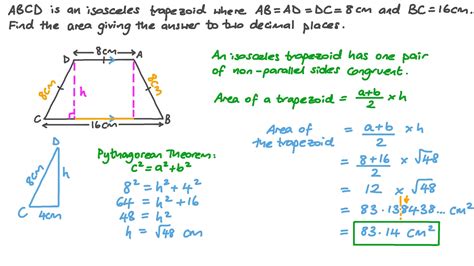 ABCD is an isosceles trapezoid where AB=AD=DC=8cm and BC=16cm.
Find the area giving the answer to two decimal places.
8cm
D
A
8cm
h
8cm
C
16cm
B
An isosceles trapezoid has one pair
of non-parallel sides congruent.
Area of a trapezoid = a+b/2 × h
D
8cm
h
C
4cm
Pythagorean Theorem:
c² = a² + b²
8² = h² + 4²
64 = h² + 16
48 = h²
h = √48 cm
Area of
the trapezoid
= a+b/2 × h
= 8+16/2 × √48
= 12 × √48
= 83.138438... cm²
= 83.14 cm²